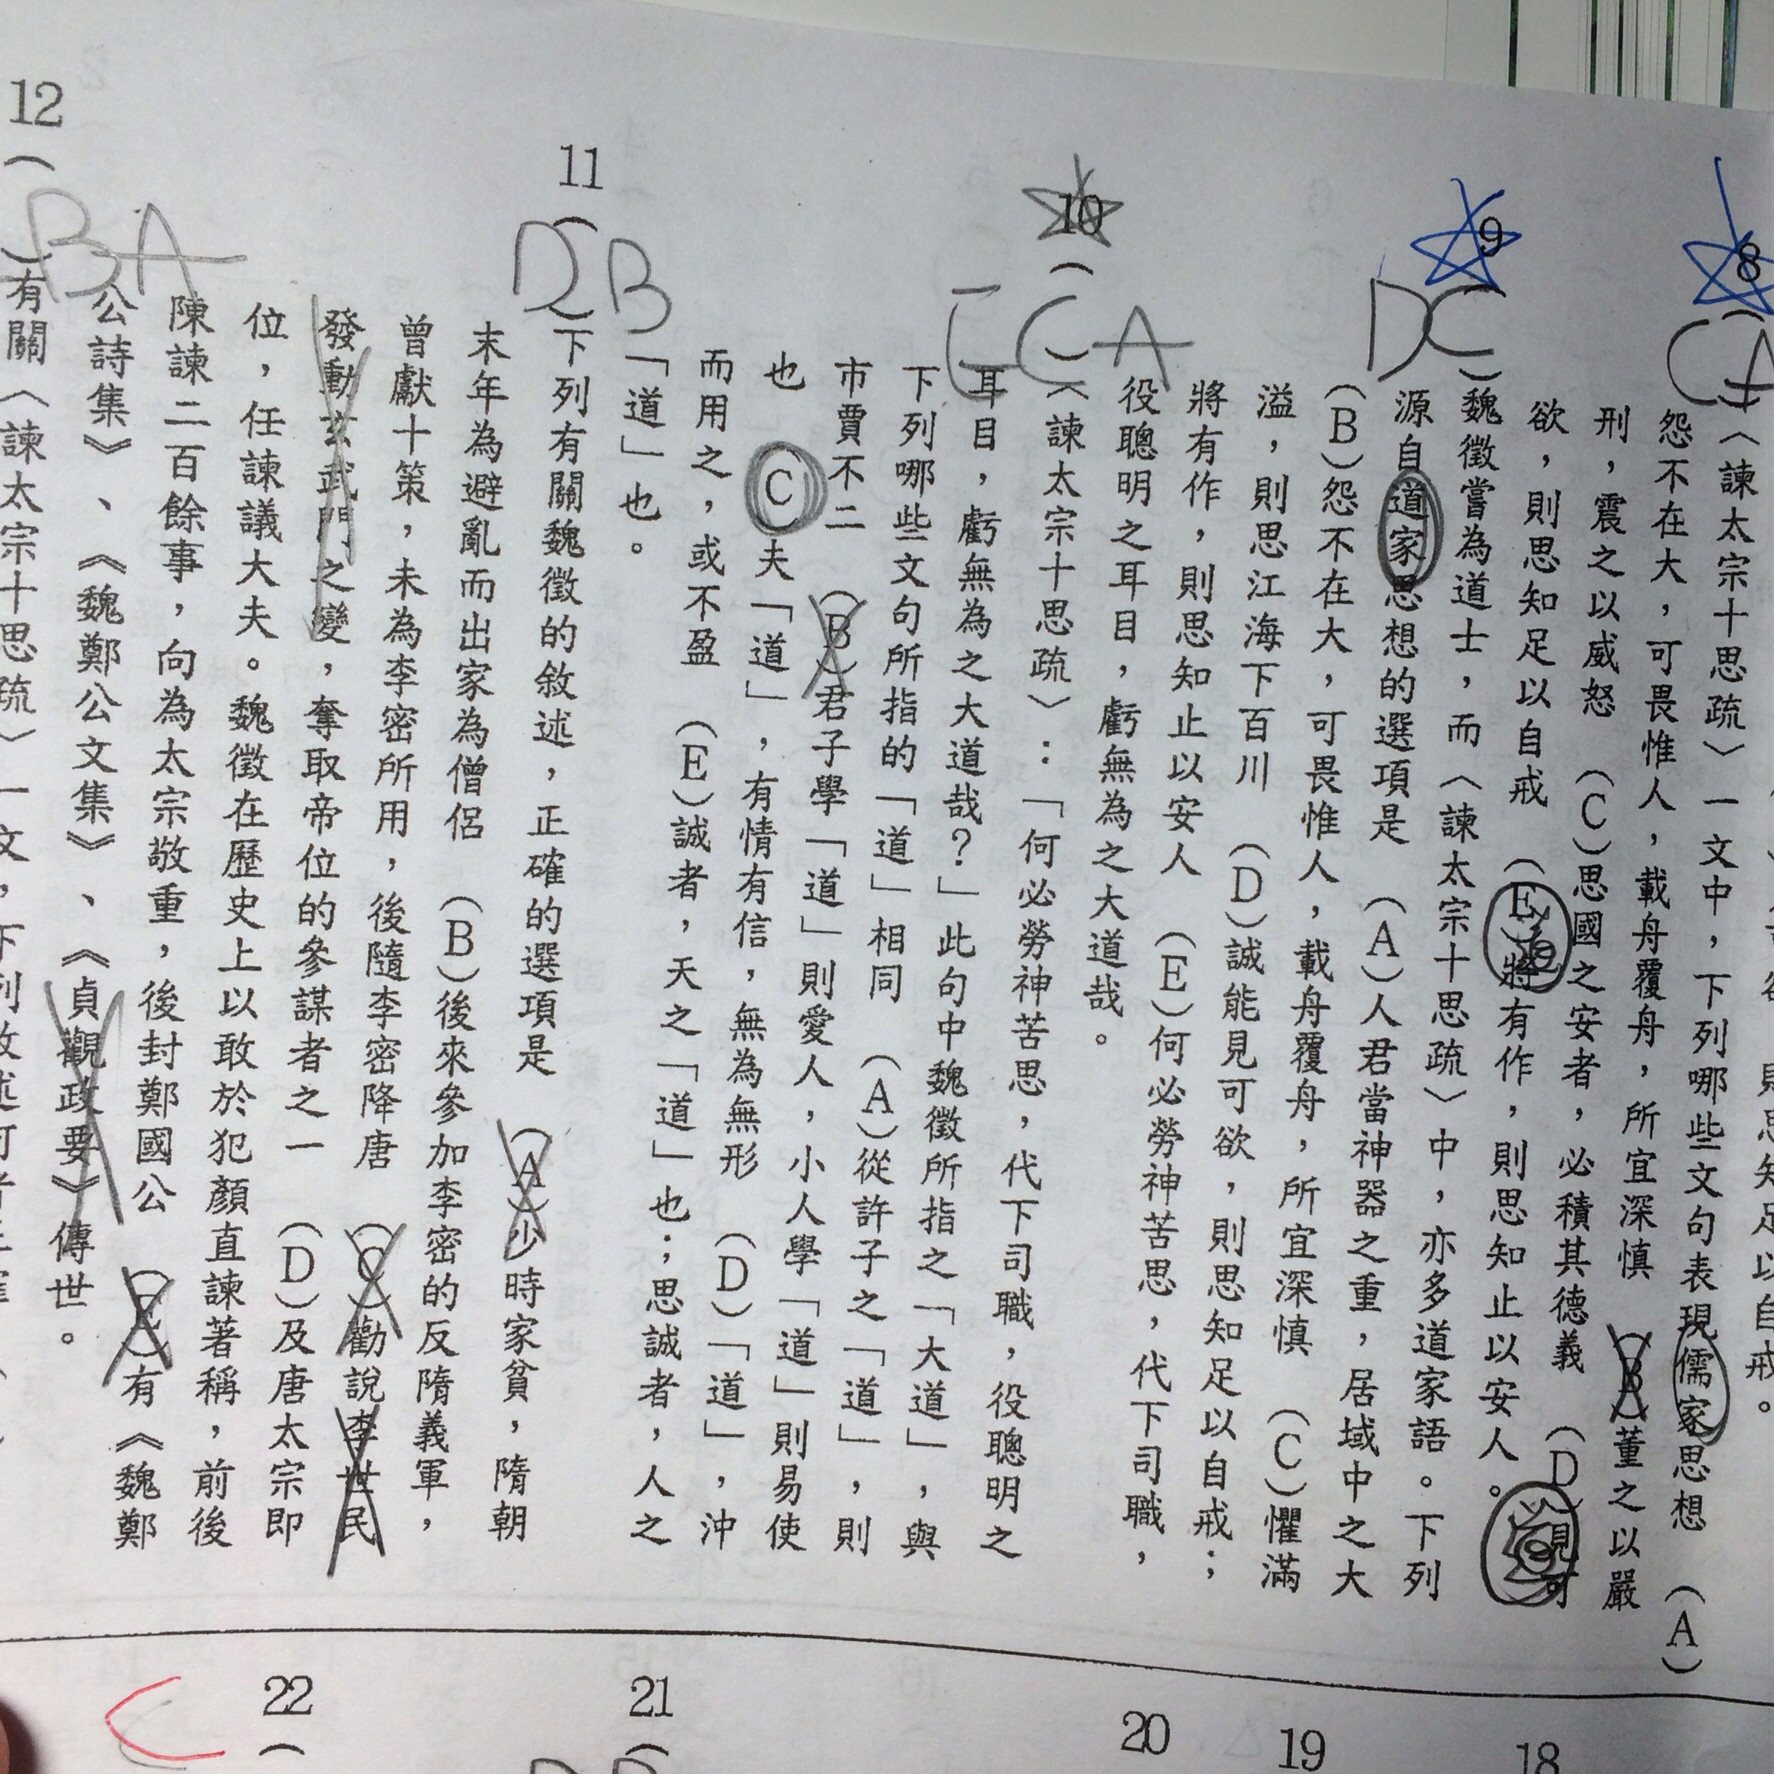 則思知足以自戒。
8（CA）〈諫太宗十思疏〉一文中，下列哪些文句表現儒家思想　（A）
怨不在大，可畏惟人，載舟覆舟，所宜深慎　（B）董之以嚴
刑，震之以威怒　（C）思國之安者，必積其德義　（D）見可
欲，則思知足以自戒　（E）將有作，則思知止以安人。
9（DC）魏徵嘗為道士，而〈諫太宗十思疏〉中，亦多道家語。下列
源自道家思想的選項是　（A）人君當神器之重，居域中之大
（B）怨不在大，可畏惟人，載舟覆舟，所宜深慎　（C）懼滿
溢，則思江海下百川　（D）誠能見可欲，則思知足以自戒；
將有作，則思知止以安人　（E）何必勞神苦思，代下司職，
役聰明之耳目，虧無為之大道哉。
10（ECA）〈諫太宗十思疏〉：「何必勞神苦思，代下司職，役聰明之
耳目，虧無為之大道哉？」此句中魏徵所指之「大道」，與
下列哪些文句所指的「道」相同　（A）從許子之「道」，則
市賈不二　（B）君子學「道」則愛人，小人學「道」則易使
也　（C）夫「道」，有情有信，無為無形　（D）「道」，沖
而用之，或不盈　（E）誠者，天之「道」也；思誠者，人之
「道」也。
11（DB）下列有關魏徵的敘述，正確的選項是　（A）少時家貧，隋朝
末年為避亂而出家為僧侶　（B）後來參加李密的反隋義軍，
曾獻十策，未為李密所用，後隨李密降唐　（C）勸說李世民
發動玄武門之變，奪取帝位的參謀者之一　（D）及唐太宗即
位，任諫議大夫。魏徵在歷史上以敢於犯顏直諫著稱，前後
陳諫二百餘事，向為太宗敬重，後封鄭國公　（E）有《魏鄭
公詩集》、《魏鄭公文集》、《貞觀政要》傳世。
12（BA）有關〈諫太宗十思疏〉一文，下列敘述何者
18
19
20
21（
22（
C